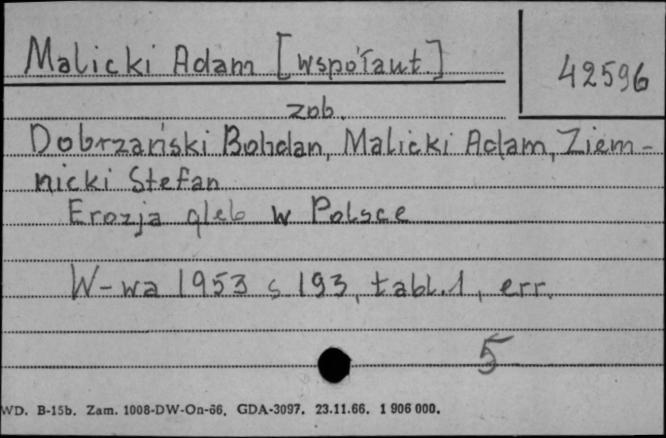 Malicki Adam [współaut.]
42596
zob.
Dobrzański Bohdan, Malicki Adam, Ziem-
nicki Stefan
Erozja gleb w Polsce
W-wa 1953 s 193, tabl. 1, err.
5
WD. B-15b. Zam. 1008-DW-On-66. GDA-3097. 23.11.66. 1 906 000.